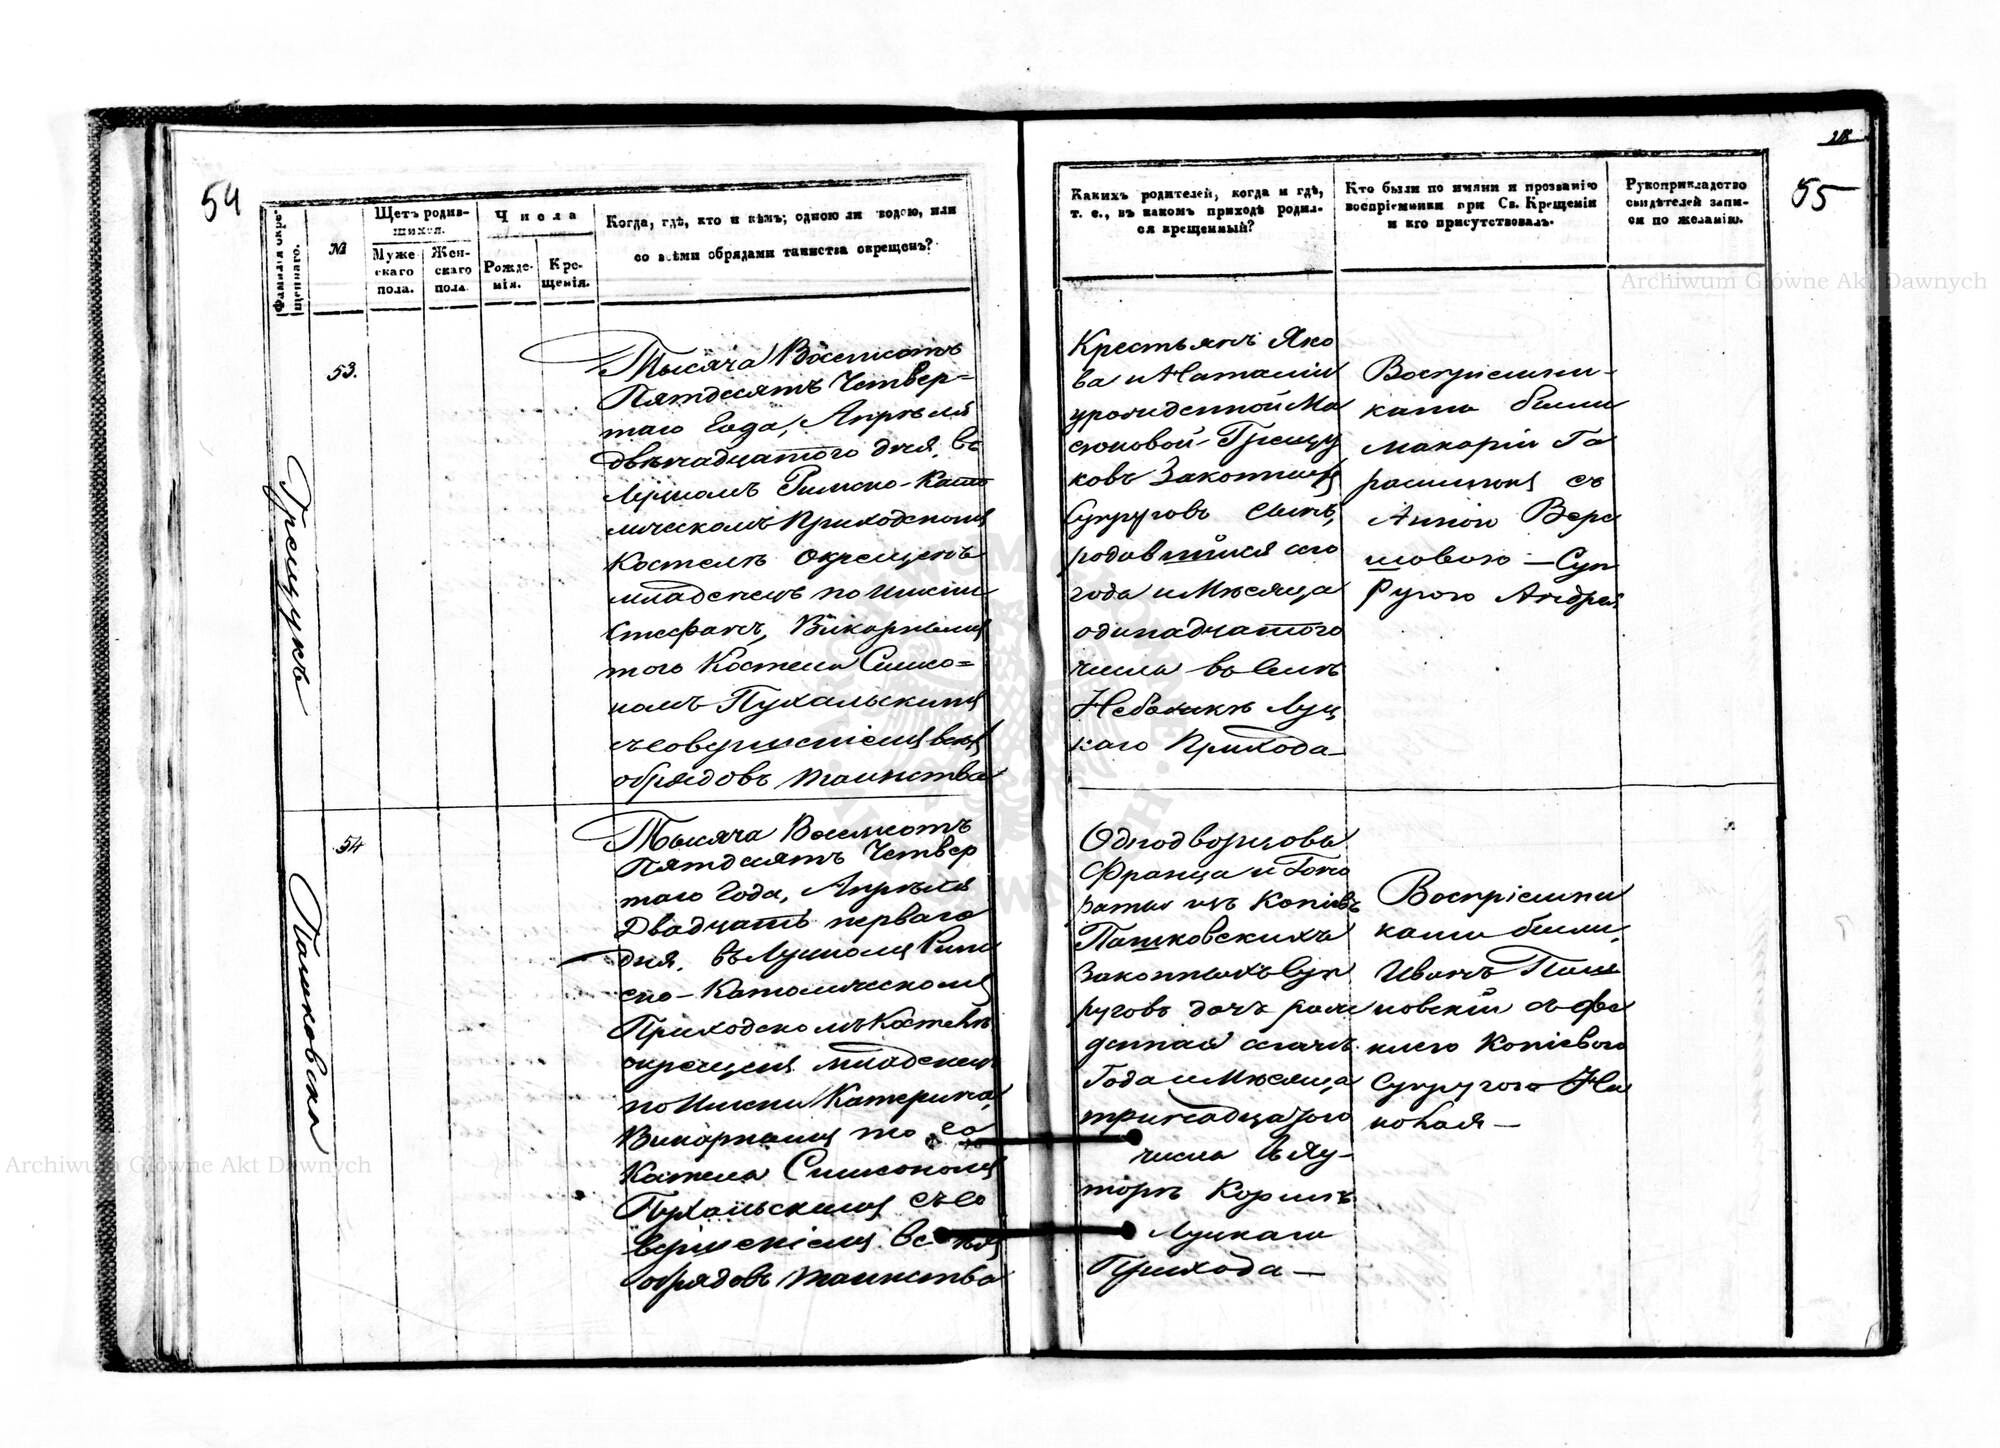 54
Фамилія окре-
щеннаго.
№
Щетъ родив-
шихся.
Муже-
скаго
пола.
Жен-
скаго
пола.
Числа
Рожде-
нія.
Кре-
щенія.
Когда, гдѣ, кто и кѣмъ; одною ли водою, или
со всѣми обрядами таинства окрещенъ?
53.
Грещукъ
Тысяча Восемсотъ
Пятдесятъ Четвер-
таго Года, Апрѣля
двѣнадцатого дня, въ
Луцкомъ Римско-Като
лическомъ Приходскомъ
Костелѣ окрещенъ
младенецъ по имени
Стефанъ, Викарнымъ
того Костела Симо=
номъ Пухальскимъ
съ совершеніемъ всѣхъ
обрядовъ таинства
54
Пашковска
Тысяча Восемсотъ
Пятдесятъ Четвер
таго Года, Апрѣля
Двадцать перваго
дня, въ Луцкомъ Рим
ско-Католическомъ
Приходскомъ Костелѣ
окрещена младенецъ
по имени Катерина,
Викарнымъ то го
Костела Симономъ
Пухальскимъ съ со
вершеніемъ всѣхъ
обрядовъ таинства
218
55
Какихъ родителей, когда и гдѣ,
т. е., въ какомъ приходѣ родил-
ся крещенный?
Кто были по имяни и прозванію
воспріемники при Св. Крещеніи
и кто присутствовалъ.
Рукоприкладство
свидѣтелей запи-
си по желанію.
Крестьянъ Яко
ва и Наталіи
урожденной Ма
сюковой Грещу
ковъ Законныхъ
Супруговъ сынъ,
родившійся сего
года и Мѣсяца
одинадцатого
числа въ селѣ
Небожкѣ Луц
каго Прихода
Воспріемни-
ками были
Макарій Га
расимюкъ съ
Анною Вере
мовою — Суп
ругою Андрея
Однодворцовъ
Франца и Гоно
раты изъ Копіевъ
Пашковскихъ
Законныхъ Суп
руговъ дочь рож
денная сего
Года и Мѣсяца
тринадцатого
числа въ Ху-
торѣ Коршевъ
Луцкаго
Прихода —
Воспріемни
ками были,
Иванъ Паш
ковскій съ Фе
лисіею Копіевою
Супругою Ни
колая —
Archiwum Główne Akt Dawnych
Archiwum Główne Akt Dawnych